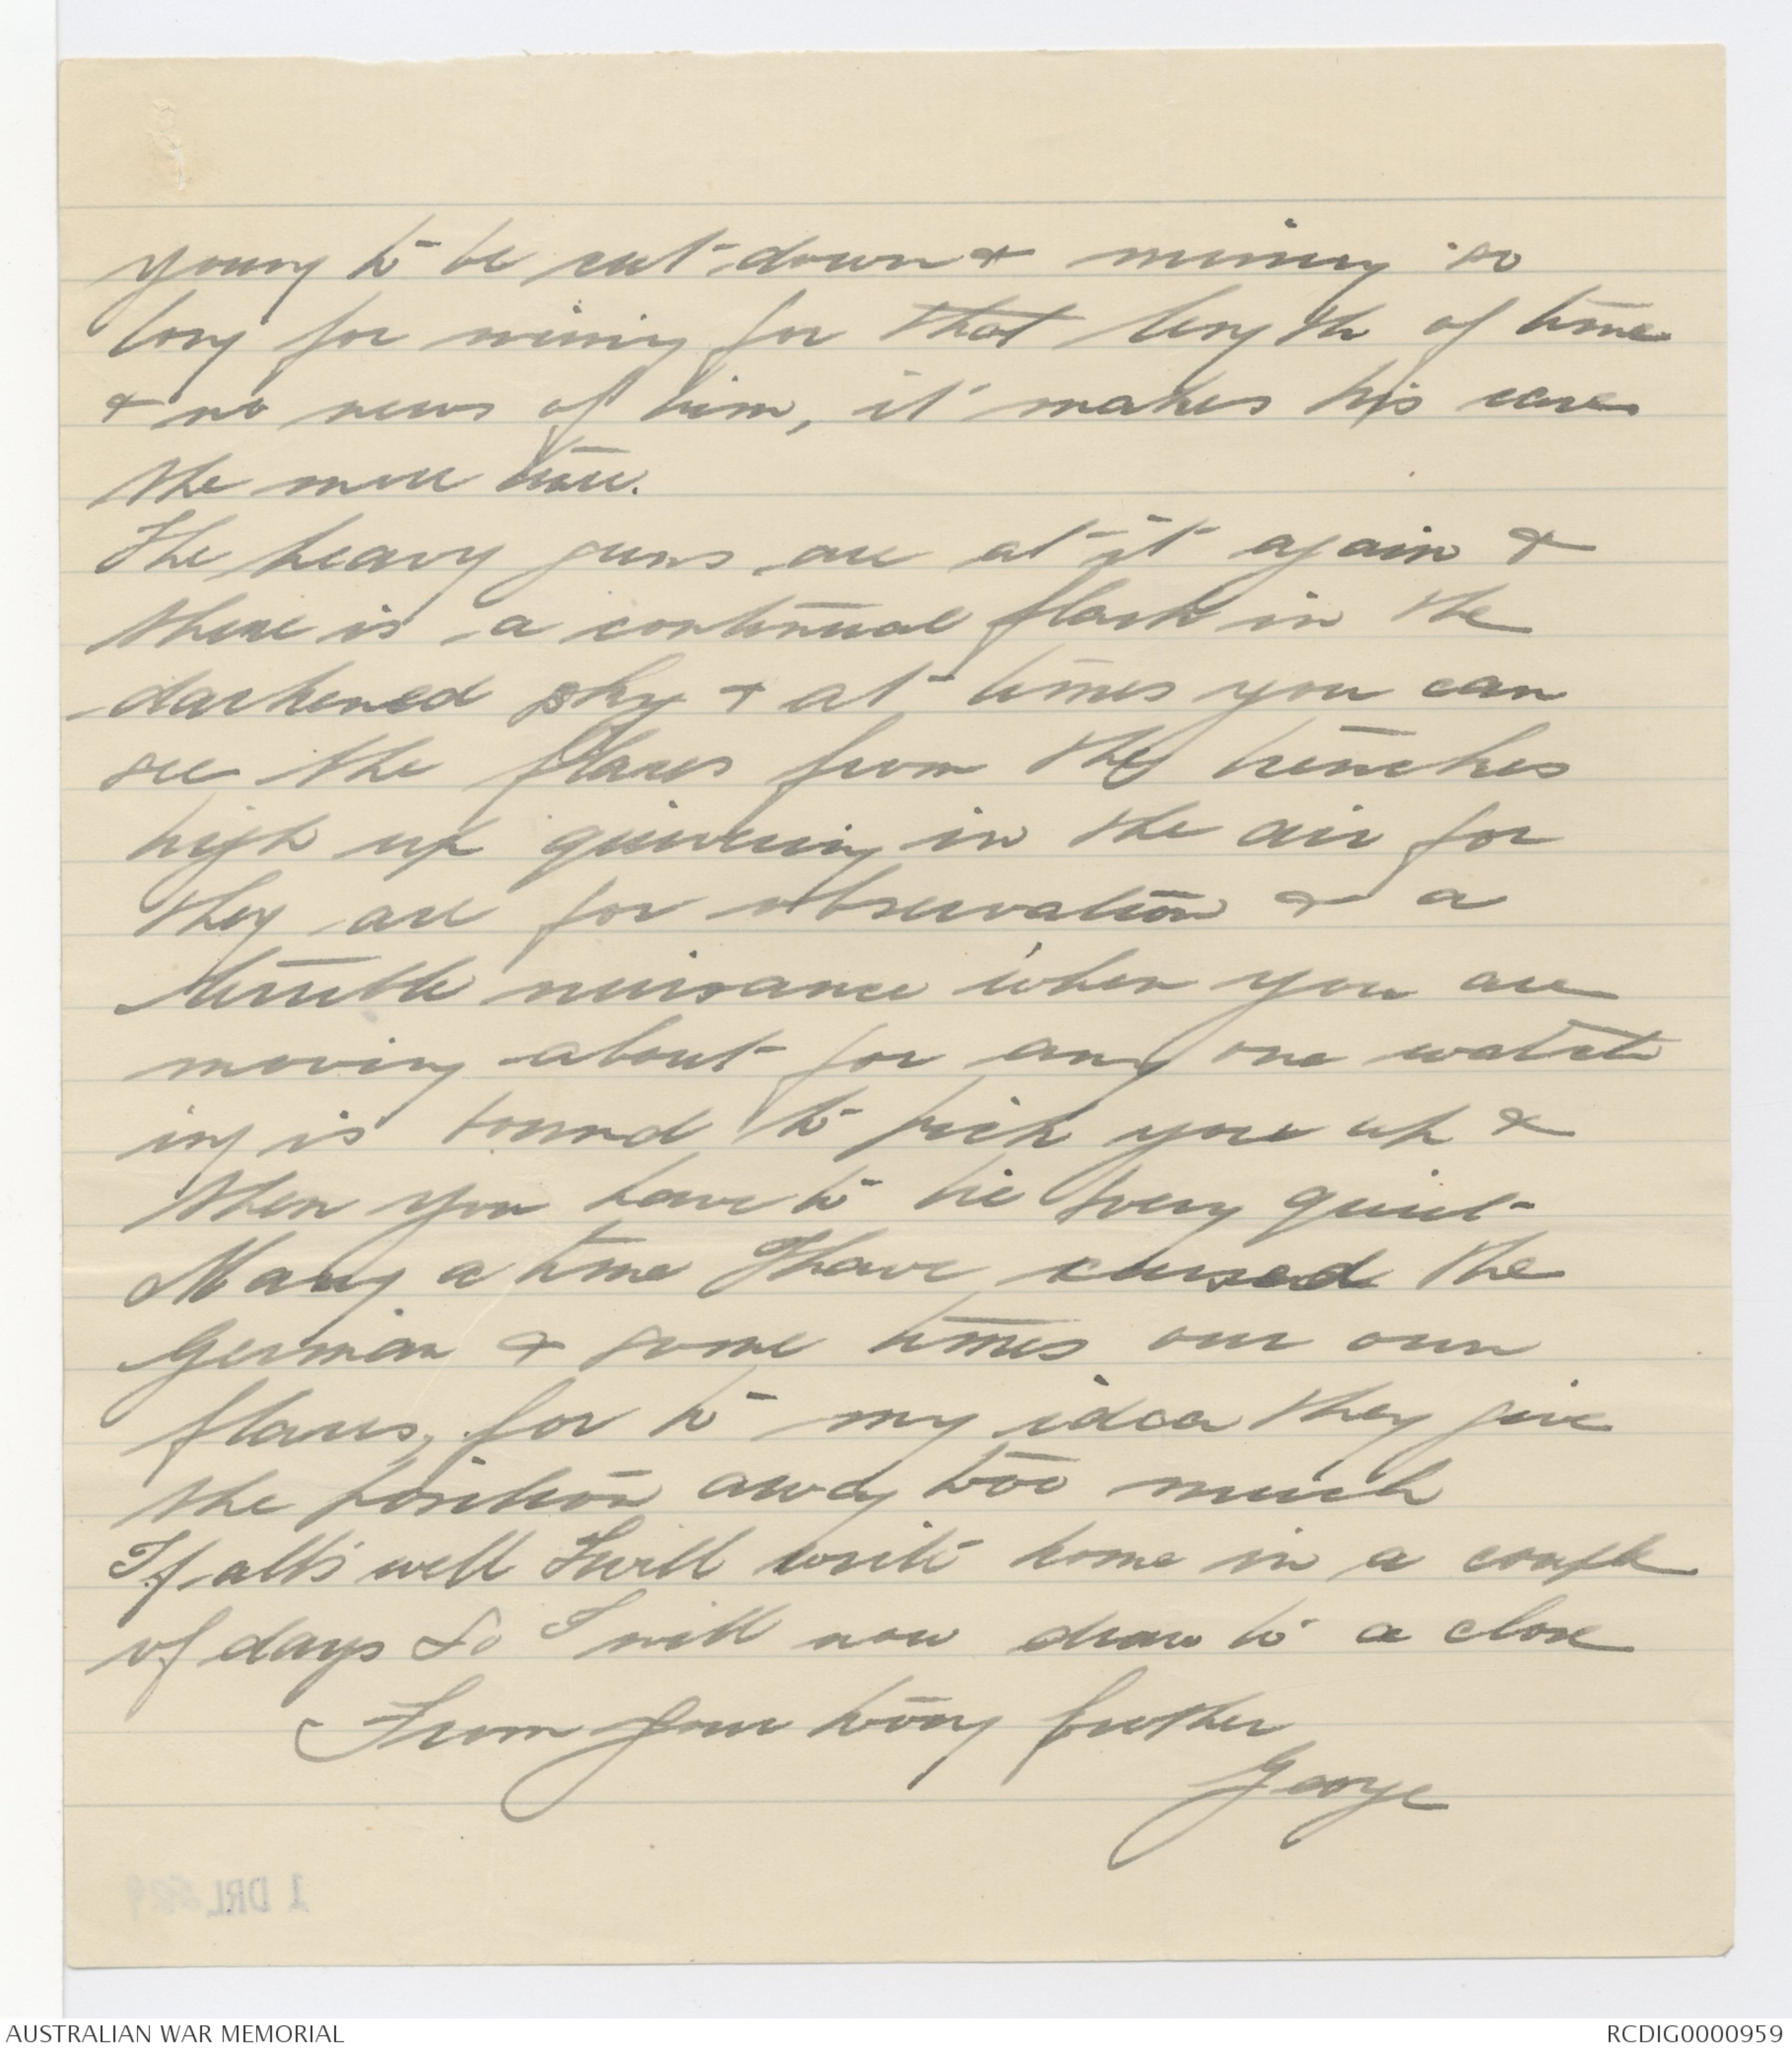 young to be cut down & missing so
long for missing for that length of time
& no news of him, it makes his case
the more
The heavy guns are at it again &
there is a continual flash in the
darkened sky & at times you can
see the flares from the trenches
high up quivering in the air for
they are for observation & a
terrible nuisance when you are
moving about for any one watch
ing is bound to pick you up &
then you have to lie very quiet
Many a time I have cursed the
German & some times our own
flares, for to my idea they give
the position away too much
If all's well I will write home in a couple
of days So I will now draw to a close
From your loving brother
George
1 DRL
AUSTRALIAN WAR MEMORIAL
RCDIG0000959